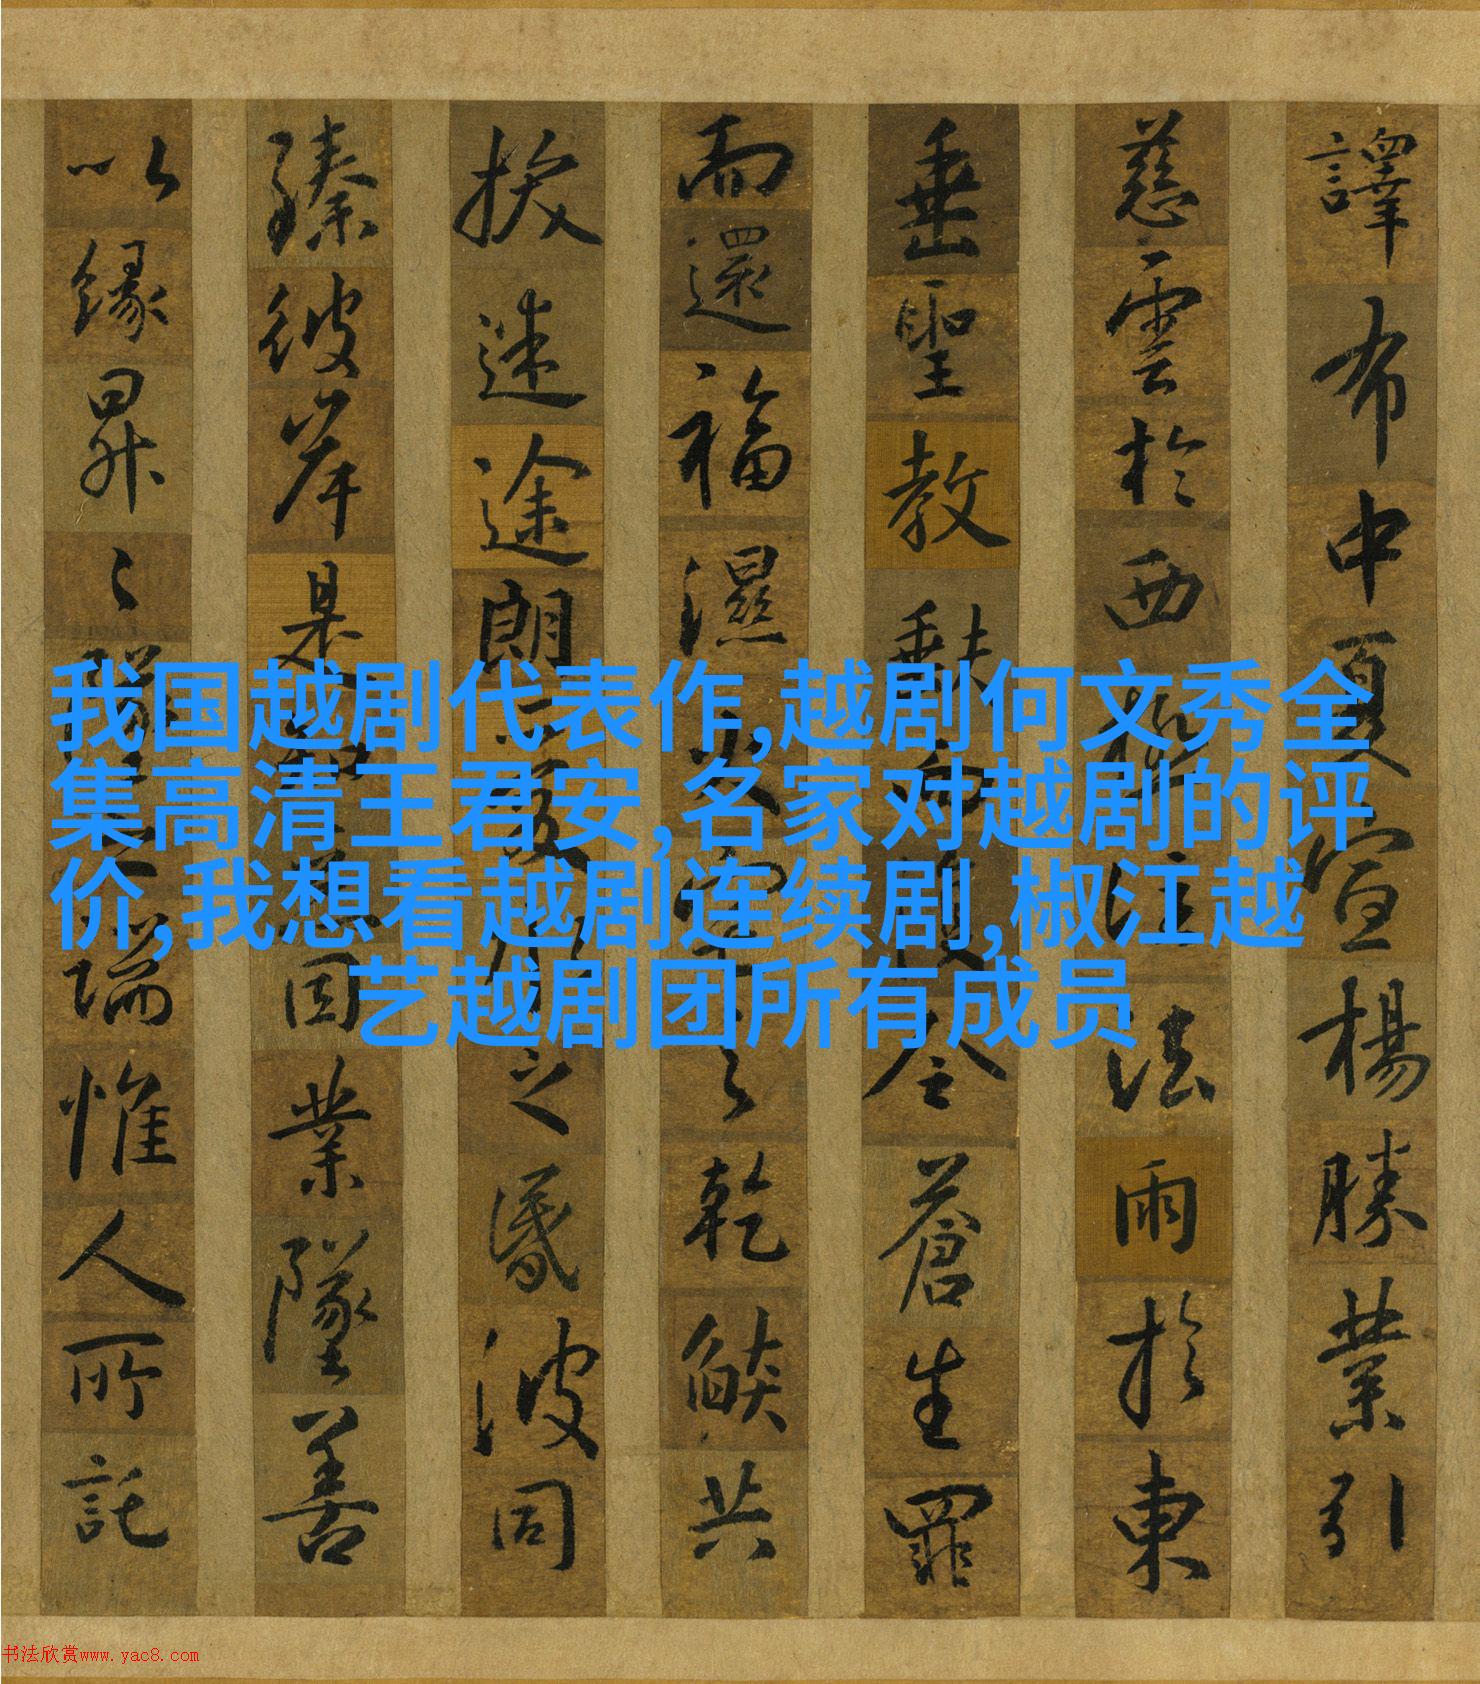 譯布中夏宣楊勝業引
慈雲於西極注法雨於東
垂聖教缺而復全蒼生罪
而還福濕火宅之乾燄共
拔迷途朗愛水之昏波同
臻彼岸是知惡因業墜善
以緣昇〻墜之端惟人所託
我国越剧代表作,越剧何文秀全
集高清王君安,名家对越剧的评
价,我想看越剧连续剧,椒江越
艺越剧团所有成员
书法欣赏www.yac8.com